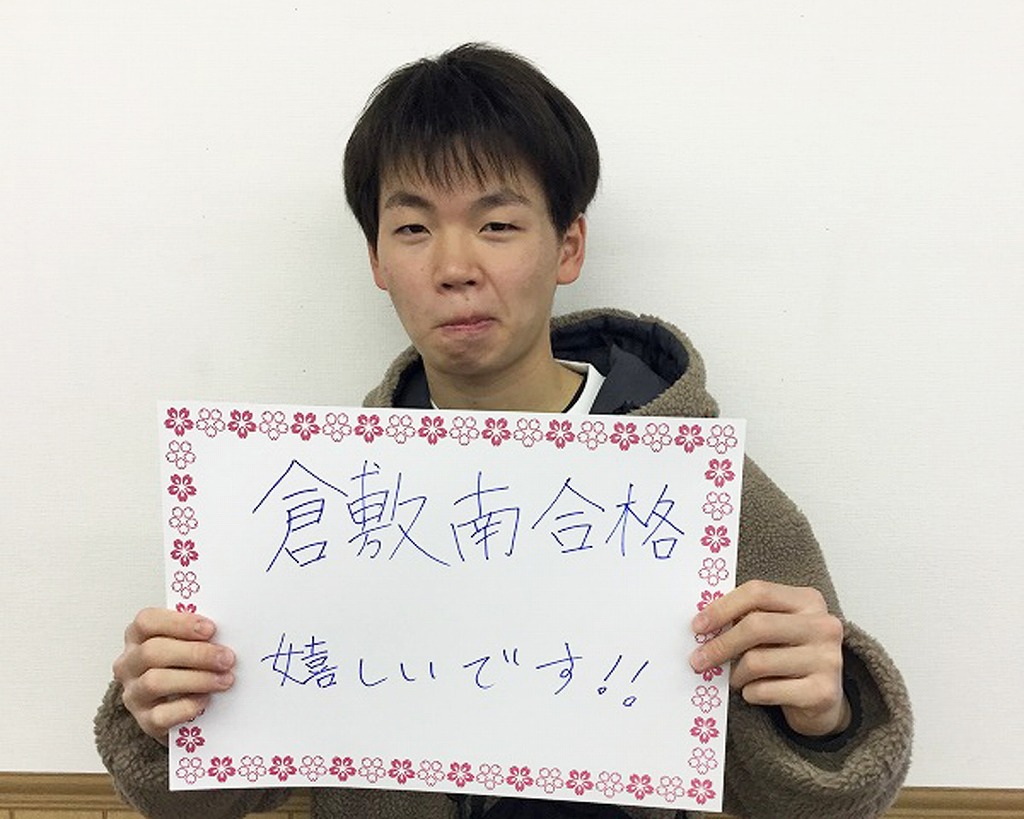 倉敷南合格
嬉しいです!!